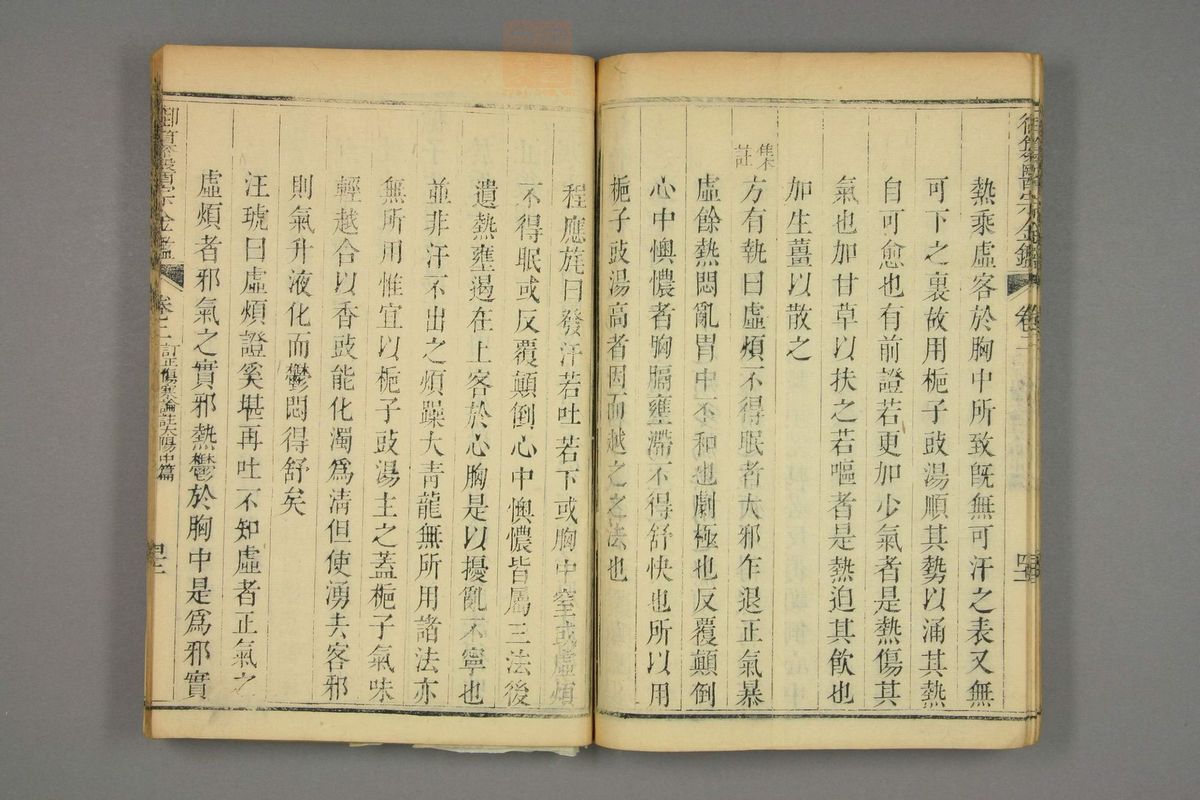 熱乘虛客於胸中所致旣無可汗之表又無
可下之裏故用梔子豉湯順其勢以涌其熱
自可愈也有前證若更加少氣者是熱傷其
氣也加甘草以扶之若嘔者是熱迫其飲也
加生薑以散之
集註
方有執曰虛煩不得眠者大邪乍退正氣暴
虛餘熱悶亂胃中不和也劇極也反覆顛倒
心中懊憹者胸膈壅滯不得舒快也所以用
梔子豉湯高者因而越之之法也
程應旄曰發汗若吐若下或胸中窒或虛煩
不得眠或反覆顛倒心中懊憹皆屬三法後
遺熱壅遏在上客於心胸是以擾亂不寧也
並非汗不出之煩躁大青龍無所用諸法亦
無所用惟宜以梔子豉湯主之蓋梔子氣味
輕越合以香豉能化濁爲清但使湧去客邪
則氣升液化而鬱悶得舒矣
汪琥曰虛煩證奚堪再吐不知虛者正氣之
虛煩者邪氣之實邪熱鬱於胸中是爲邪實
卷二 訂正傷寒論註太陽中篇